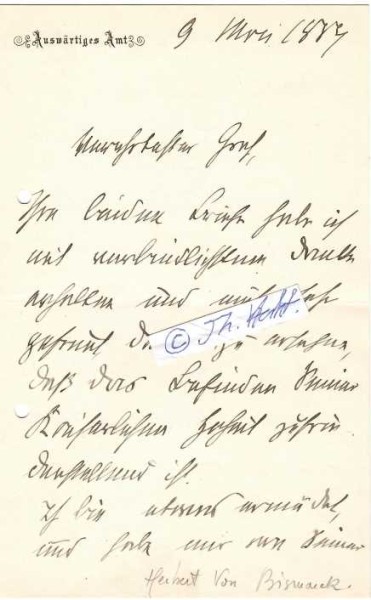 Auswärtiges Amt
9 Mai 1887
Verehrtester Graf,
Ihre beiden Briefe habe ich
mit verbindlichstem Danke
erhalten und mich sehr
gefreut zu ersehen,
daß das Befinden Seiner
Kaiserlichen Hoheit zufrie
denstellend ist.
Ich bin etwas ermüdet,
und habe mir von Seiner
© Th. Hatt.
Herbert von Bismarck.